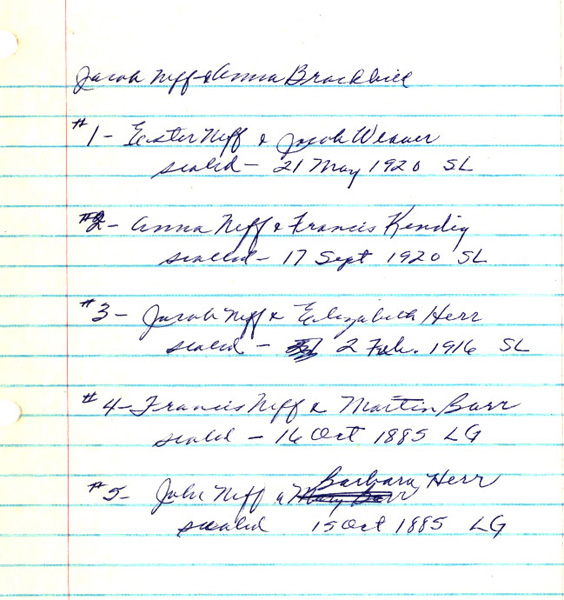 Jacob Neff & Anna Brackbill
#1- Easter Neff & Jacob Weaver
sealed - 21 May 1920 SL
#2- Anna Neff & Francis Kendig
sealed - 17 Sept 1920 SL
#3- Jacob Neff & Elizabeth Herr
sealed - 2 Feb. 1916 SL
#4- Francis Neff & Martin Barr
sealed - 16 Oct 1885 LG
#5- John Neff & Barbara Herr
sealed 15 Oct 1885 LG